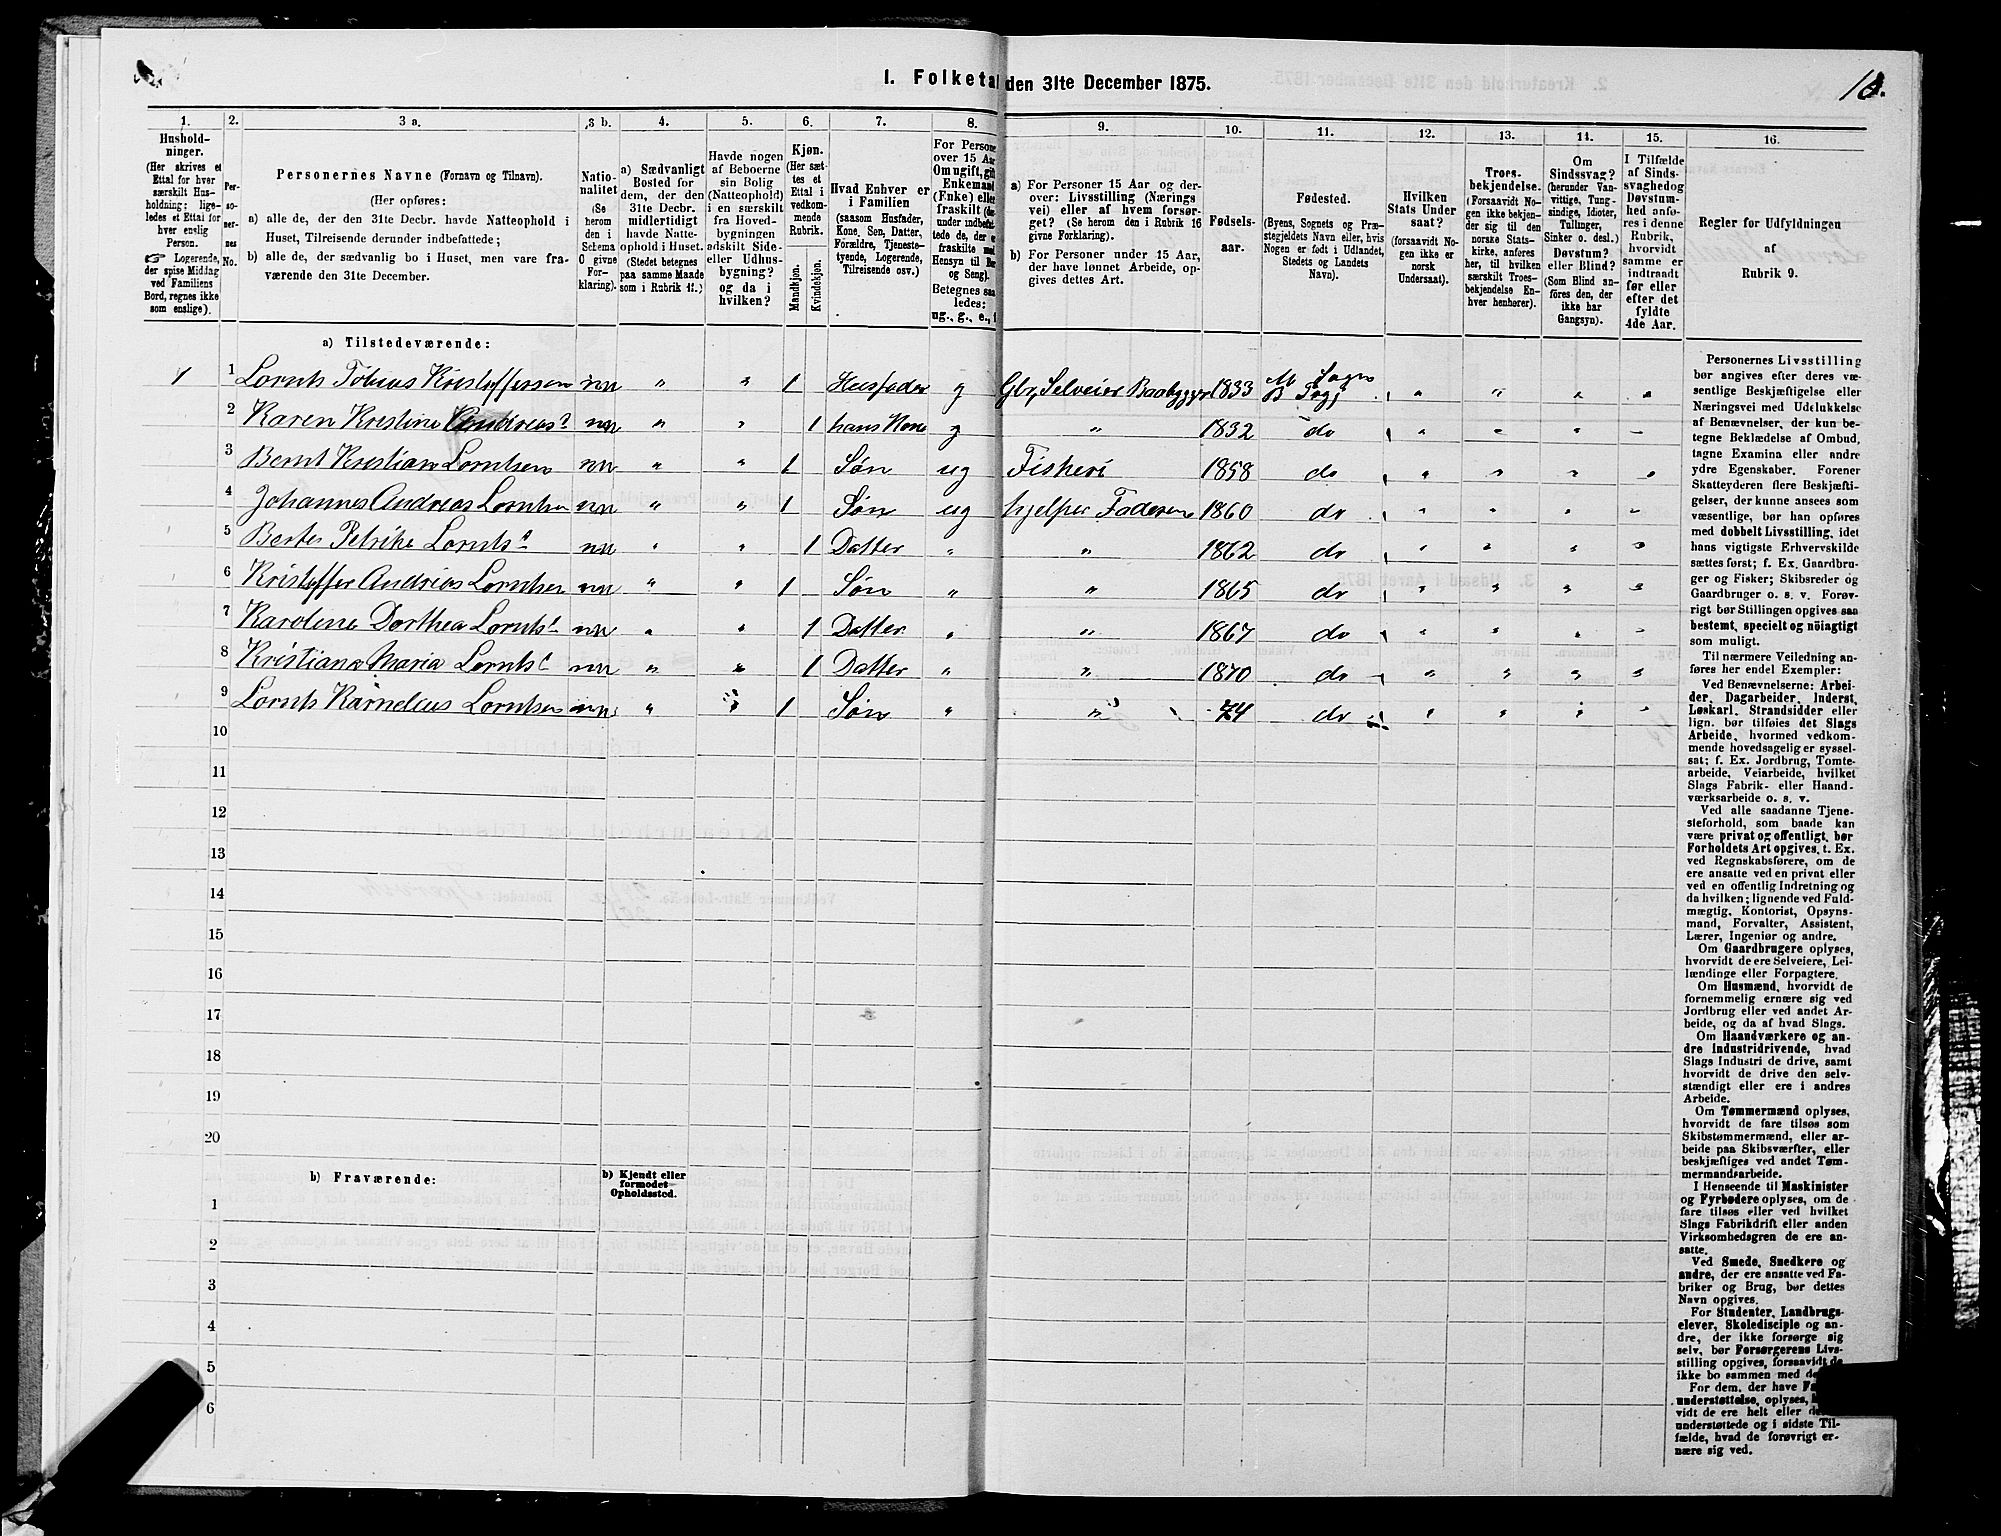 I. Folketal den 31te December 1875.
10.
1. 2. 3 a. 3 b. 4. 5. 6. 7. 8. 9. 10. 11. 12. 13. 14. 15. 16.
Hushold-
ninger.
(Her skrives et
Ettal for hver
særskilt Hus-
holdning; lige-
ledes et Ettal for
hver enslig
Person.
☞ Logerende,
der spise Middag
ved Familiens
Bord, regnes ikke
som enslige).
Per-
so-
ner-
nes
No.
Personernes Navne (Fornavn og Tilnavn).
(Her opføres:
a) alle de, der den 31te Decbr. havde Natteophold i
Huset, Tilreisende derunder indbefattede;
b) alle de, der sædvanlig bo i Huset, men vare fra-
værende den 31te December.
Natio-
nalitet
(Se
herom
den i
Schema
O givne
For-
klaring).
a) Sædvanligt
Bosted for
dem, der den
31te Decbr.
midlertidigt
havde Natte-
ophold i Huset.
(Stedet betegnes
paa samme Maade
som i Rubrik 11.)
Havde nogen
af Beboerne
sin Bolig
(Natteophold)
i en særskilt
fra Hoved-
bygningen
adskilt Side-
eller Udhus-
bygning?
og da i
hvilken?
Kjøn.
(Her sæt-
tes et
Ettal i
vedkom-
mende
Rubrik.
Mandkjøn.
Kvindekjøn.
Hvad Enhver er
i Familien
(saasom Husfader,
Kone, Søn, Datter,
Forældre, Tjeneste-
tyende, Logerende,
Tilreisende osv.)
For Persone
over 15 Aar
Om ugift, gift
Enkemand
(Enke) eller
fraskilt
under indbefat-
tede de, der
fraskilte med
Hensyn til
og Seng).
Betegnes saa
ledes:
ug., g., e., f
a) For Personer 15 Aar og der-
over: Livsstilling (Nærings
vei) eller af hvem forsør-
get? (Se herom den i Rubrik 16
givne Forklaring).
b) For Personer under 15 Aar,
der have lønnet Arbeide, op-
gives dettes Art.
Fødsels-
aar.
Fødested.
(Byens, Sognets og Præ-
stegjeldets Navn eller, hvis
Nogen er født i Udlandet,
Stedets og Landets
Navn).
Hvilken
Stats Under
saat?
(forsaavidt No-
gen ikke er
norsk
Undersaat).
Troes-
bekjendelse.
(Forsaavidt No-
gen ikke bekjen-
der sig til den
norske Stats-
kirke, anføres
her, til hvilken
særskilt Troes-
bekjendelse En-
hver henhører).
Om
Sindssvag?
(herunder Van-
vittige, Tung-
sindige, Idioter,
Tullinger,
Sinker o. desl.)
Døvstum?
eller Blind?
(Som Blind an-
føres den, der
ikke har
Gangsyn).
I Tilfælde
af Sinds-
svaghed og
Døvstum-
hed anfø-
res i denne
Rubrik,
hvorvidt
samme er
indtraadt
før eller
efter det
fyldte
4de Aar.
Regler for Udfyldningen
af
Rubrik 9.
a) Tilstedeværende:
1 1 Lornts Tobias Kristoffersen nn " " 1 Husfader g Gbr, Selveier 1833
2 Karen Kristine nn " " 1 hans Kone g " 1832 do " " " "
3 Bernt Kristian Lorntsen nn " " 1 Søn ug Fiskeri 1858 do " " " "
4 Johannes Andreas Lorntsen nn " " 1 Søn ug hjelper Faderen 1860 do " " " "
5 Petrike Lornts nn " " 1 Datter " " 1862 do " " " "
6 Kristoffer Andreas Lorntsen nn " " 1 Søn " " 1865 do " " " "
7 Karoline Dorthea Lornts nn " " 1 Datter " " 1867 do " " " "
8 Kristiane Maria Lornts nn " " 1 Datter " " 1870 do " " " "
9 Lornts Kornelius Lorntsen nn " " 1 Søn " " 74 do " " " "
10
11
12
13
14
15
16
17
18
19
20
b) Fraværende:
b) Kjendt eller
formodet
Opholdssted.
1
2
3
4
5
6
Personernes Livsstilling
bør angives efter deres væ-
sentlige Beskjæftigelse eller
Næringsvei med Udelukkelse
af Benævnelser, der kun be-
tegne Beklædelse af Ombud,
tagne Examina eller andre
ydre Egenskaber. Forener
Skatteyderen flere Beskjæfti-
gelser, der kunne ansees som
væsentlige, bør han opføres
med dobbelt Livsstilling, idet
hans vigtigste Erhvervskilde
sættes først; f. Ex. Gaardbru-
ger og Fisker; Skibsreder og
Gaardbruger o. s. v. Forøv-
rigt bør Stillingen opgives saa
bestemt, specielt og nöiagtigt
som muligt.
Til nærmere Veiledning an-
føres her endel Exempler:
Ved Benævnelserne: Arbei-
der, Dagarbeider, Inderst,
Løskarl, Strandsidder eller
lign. bør tilføies det Slags
Arbeide, hvormed vedkom-
mende hovedsagelig er syssel-
sat; f. Ex. Jordbrug, Tomte-
arbeide, Veiarbeide, hvilket
Slags Fabrik- eller Haand-
værksarbeide o. s. v.
Ved alle saadanne Tjene-
steforhold, som baade kan
være privat og offentligt, bør
Forholdets Art opgives, t. Ex.
ved Regnskabsførere, om de
ere ansatte ved en privat eller
ved en offentlig Indretning og
da hvilken; lignende ved Fuld-
mægtig, Kontorist, Opsyns-
mand, Forvalter, Assistent,
Lærer, Ingeniør og andre.
Om Gaardbrugere oplyses,
hvorvidt de ere Selveiere, Lei-
lændinge eller Forpagtere.
Om Husmænd, hvorvidt de
fornemmelig ernære sig ved
Jordbrug eller ved andet Ar-
beide, og da af hvad Slags.
Om Haandværkere og an-
dre industridrivende, hvad
Slags Industri de drive, samt
hvorvidt de drive den selv-
stændigt eller ere i andres
Arbeide.
Om Tømmermænd oplyses,
hvorvidt de fare tilsøs som
Skibstømmermænd, eller ar-
beide paa Skibsværfter, eller
beskjæftiges ved andet Tøm-
mermandsarbeide.
I Henseende til Maskinister
og Fyrbødere oplyses, om de
fare tilsøs eller ved hvilket
Slags Fabrikdrift eller anden
Virksomhedsgren de ere an-
satte.
Ved Smede, Snedkere og
andre, der ere ansatte ved Fa-
briker og Brug, bør dettes
Navn opgives.
For Studenter, Landbrugs-
elever, Skoledisciple og an-
dre, der ikke forsørge sig
selv, bør Forsørgerens Livs-
stilling opgives, forsaavidt de
ikke bo sammen med
For dem, der have
understøttelse, oplyses,
vidt de ere helt eller
understøttede og i sidste Til-
fælde, hvad de forøvrigt er-
nære sig ved.